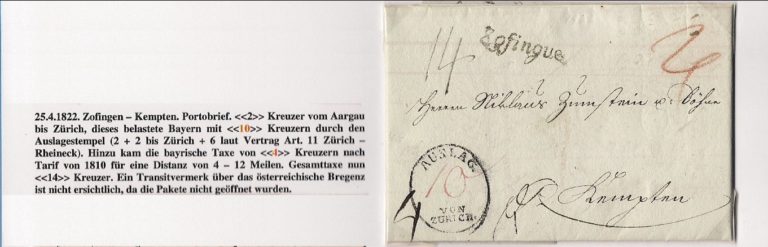 25.4.1822. Zofingen – Kempten. Portobrief. <<2>> Kreuzer vom Aargau
bis Zürich, dieses belastete Bayern mit <<10>> Kreuzern durch den
Auslagestempel (2 + 2 bis Zürich + 6 laut Vertrag Art. 11 Zürich –
Rheineck). Hinzu kam die bayrische Taxe von <<4>> Kreuzern nach
Tarif von 1810 für eine Distanz von 4 – 12 Meilen. Gesamttaxe nun
<<14>> Kreuzer. Ein Transitvermerk über das österreichische Bregenz
ist nicht ersichtlich, da die Pakete nicht geöffnet wurden.
14
Zofingue
Herren Niklaus Zumstein u. Söhne
AUSLAG.
10
VON
ZÜRICH.
4
Kempten